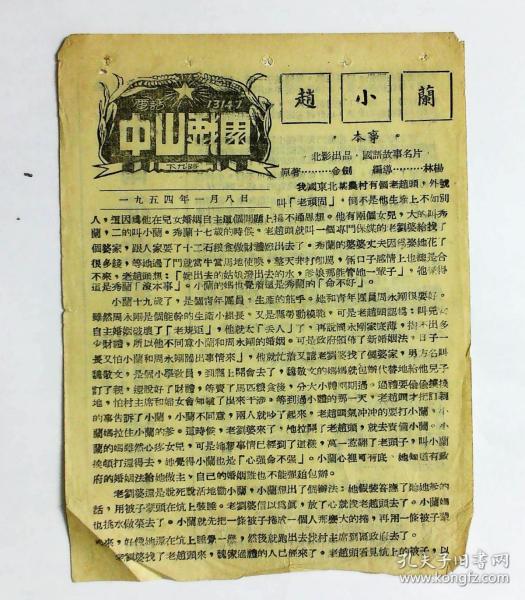 電話 13147
中山戲園
下九路
一九五四年一月八日
趙小蘭
·本事·
北影出品·國語故事名片
原著 金劍 編導 林楊
我國東北某農村有個老趙頭,外號
叫「老頑固」,倒不是他生來上不如別
人,這因為他在兒女婚姻自主這個問題上搞不通思想。他有兩個女兒,大的叫秀
蘭,二的叫小蘭。秀蘭十七歲的時候,老趙頭就叫一個專門保媒的老劉婆給找了
個婆家,跟人家要了十二石糧食做財禮嫁出去了。秀蘭的婆婆丈夫因為娶她花了
很多錢,等她過了門就當牛當馬地使喚,整天非打即罵,倆口子感情上也總是合
不來。老趙頭想:「嫁出去的姑娘潑出去的水,爹娘那能管她一輩子」,他覺得
這是秀蘭「沒本事」。小蘭的媽也覺着這是秀蘭的「命不好」。
小蘭十九歲了,是個青年團員,生產的能手。她和青年團員周永剛很要好。
雖然周永剛是個能幹的生產小組長,又是縣勞動模範,可是老趙頭認為:叫兒女
自主婚姻破壞了「老規矩」,他就太「丢人」了。再說周永剛家底薄,拿不出多
少財禮,所以他不同意小蘭和周永剛的婚姻。可是政府頒佈了新婚姻法,日子一
長又怕小蘭和周永剛鬧出事情來」,他就忙着又請老劉婆找了個婆家,男方名叫
魏敬文,是個小學教員,到縣上開會去了。魏敬文的媽媽就包辦代替地給他兒子
訂了親,還說好了財禮,等賣了馬匹糧食後,分大小禮兩周過。過禮要偷偷摸摸
地,怕村主席和婦女會知道了出來干涉。等到過小禮的那一天,老趙頭才把訂親
的事告訴了小蘭,小蘭不同意,兩人就吵了起來。老趙頭氣冲冲的要打小蘭,小
蘭媽拉住小蘭的爹。這時候,老劉婆來了。她拉開了老趙頭,就去責備小蘭。小蘭
的媽雖然心疼女兒,可是她想事情已經到了這樣,萬一惹翻了老頭子,叫小蘭
挨頓打還得去。她覺得小蘭也是「心强命不强」。小蘭心裡可有底,她知道有政
府的婚姻法給她做主,自己的婚姻誰也不能强迫包辦。
老劉婆還是說死說活地勸小蘭,小蘭想出了個辦法:她假裝答應了給她講的
話,用被子蒙頭在炕上裝睡。老劉婆信以為眞,放了心就找老趙頭去了。小蘭媽
也挑水做菜去了。小蘭就先把一條被子捲成一個人那麼大的捲,再用一條被子蒙
起來,好像她還在炕上睡覺一樣,然後就跑出去找村主席到區政府去了。
老劉婆找了老趙頭來,魏家過禮的人已經來了。老趙頭看見炕上的被子,以
孔夫子旧书网
kongfz.com